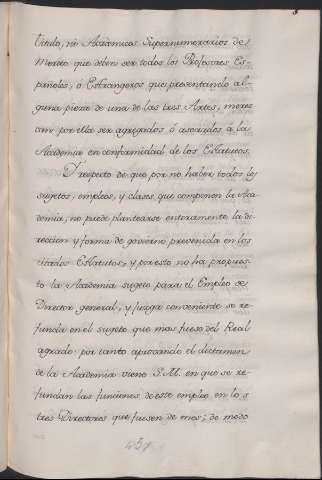 titulo, ni Academicos Supernumerarios de
Merito que deben ser todos los Profesores Es-
pañoles, ó Estrangeros que presentando al-
guna pieza de una de las tres Artes, merez
can por ella ser agregados ó asociados á la
Academia en conformidad de los Estatutos.
Y respecto de que por no haber todos los
sugetos, empleos, y clases que componen la Aca-
demia, no puede plantearse enteramente la di-
reccion y forma de govierno prevenida en los
citados Estatutos, y por esto no ha propues-
to la Academia sugeto para el Empleo de
Director general, y juzga conveniente se re-
funda en el sugeto que mas fuese del Real
agrado: por tanto aprovando el dictamen
de la Academia viene S.M. en que se re-
fundan las funciones de este empleo en los
tres Directores que fuesen de mes; de modo
457